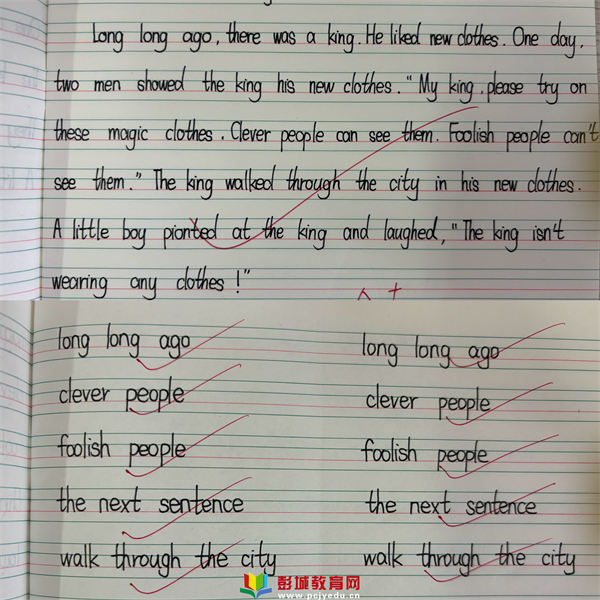 Long long ago, there was a king. He liked new clothes. One day,
two men showed the king his new clothes. "My king, please try on
these magic clothes. Clever people can see them. Foolish people can't
see them." The king walked through the city in his new clothes.
A little boy pionted at the king and laughed, "The king isn't
wearing any clothes!"
A+
long long ago
long long ago
clever people
clever people
foolish people
foolish people
the next sentence
the next sentence
walk through the city
walk through the city
彭城教育网
www.pcjyedu.cn